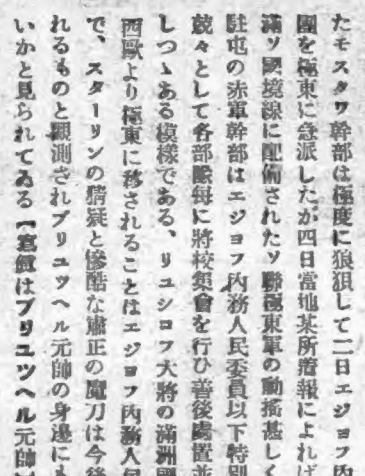 たモスクワ幹部は極度に狼狽して二日エジョフ内
團を極東に急派したが四日當地某所着報によれば
滿ソ國境線に配備されたソ聯極東軍の動搖甚しく
駐屯の赤軍幹部はエジョフ内務人民委員以下特別
兢々として各部隊毎に將校集會を行ひ善後處置並
しつゝある模樣である、リュシコフ大將の滿洲國
西歐より極東に移されることはエジョフ内務人民
で、スターリンの猜疑と慘酷な肅正の魔刀は今後
れるものと觀測されブリュツヘル元帥の身邊にも
いかと見られてゐる【寫眞はブリユツヘル元帥】